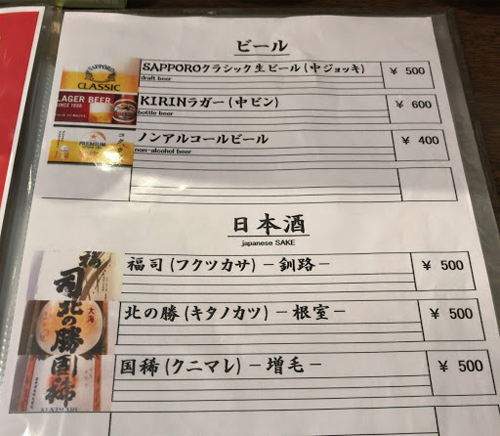 ビール
SAPPORO
CLASSIC
SAPPOROクラシック生ビール(中ジョッキ)
draft beer
¥ 500
LAGER BEER
SINCE 1888
KIRINラガー(中ビン)
bottle beer
¥ 600
PREMIUM
ノンアルコールビール
non-alcohol beer
¥ 400
日本酒
japanese SAKE
福司
福司(フクツカサ)－釧路－
¥ 500
北の勝
大海
北の勝(キタノカツ)－根室－
¥ 500
国稀
国稀(クニマレ)－増毛－
¥ 500